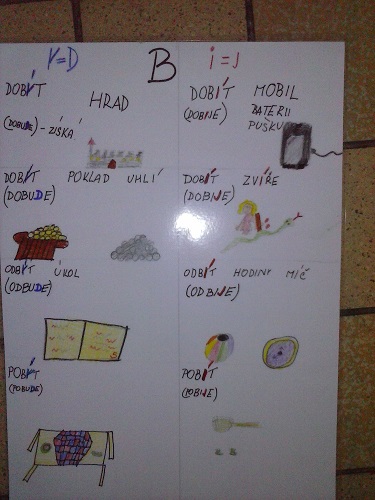 Y=D
B
i=J
DOBÝT HRAD
(DOBUDE) - ZÍSKÁ
DOBÍT MOBIL
(DOBIJE) BATERII
PUŠKU
DOBÝT POKLAD UHLÍ
(DOBUDE)
DOBÍT ZVÍŘE
(DOBIJE)
ODBÝT ÚKOL
(ODBUDE)
ODBÍT HODINY MÍČ
(ODBIJE)
POBÝT
(POBUDE)
POBÍT
(POBIJE)